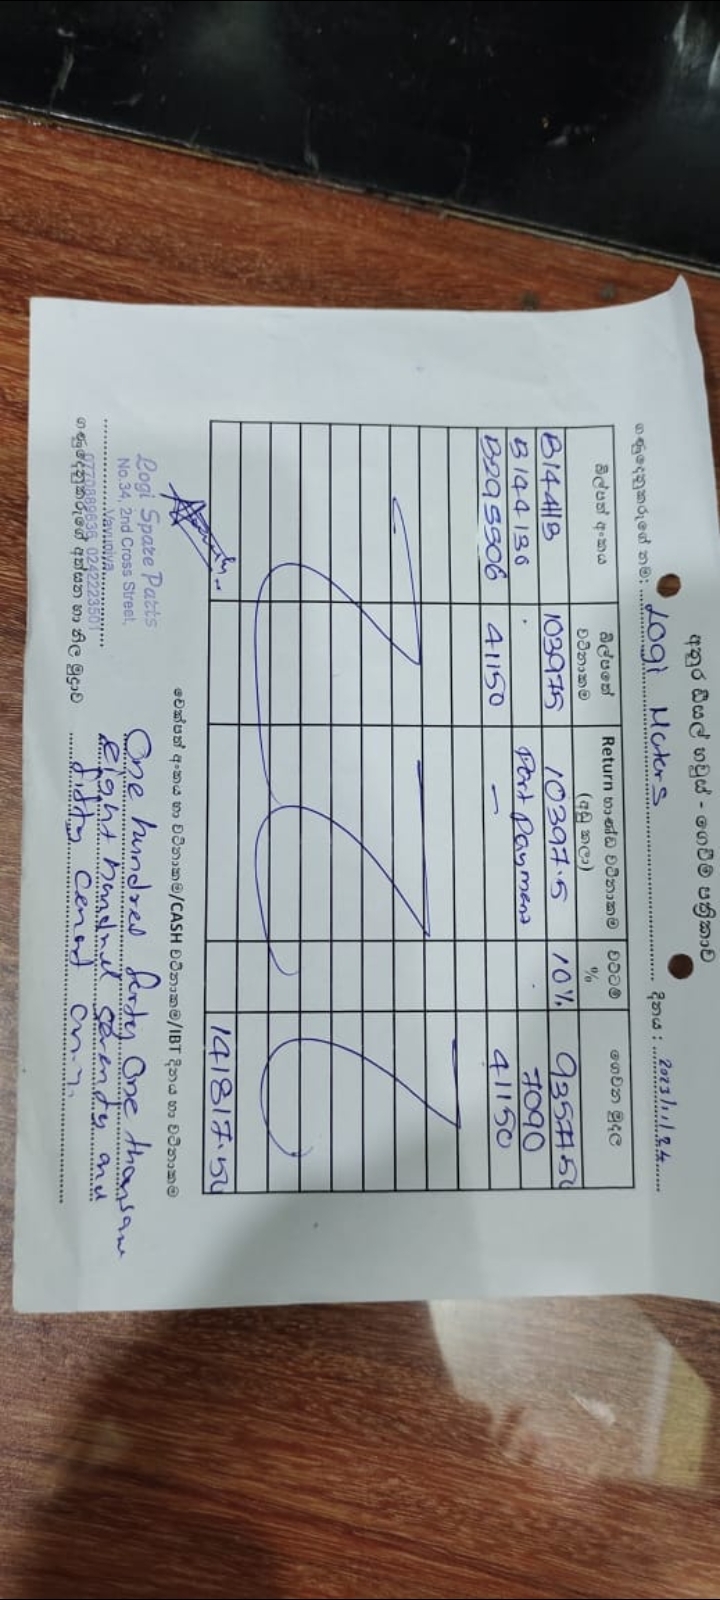 අනුර ඩීසල් හවුස් - ගෙවීම් පත්‍රිකාව
ගණුදෙනුකරුගේ නම: Logi Motors දිනය : 2023/11/24
බිල්පත් අංකය බිල්පතේ වටිනාකම Return භාණ්ඩ වටිනාකම (අඩු කලා) වට්ටම් % ගෙවන මුදල
B14411B 103975 10397.5 10% 93577.50
B144136 . Part Payment . 7090
B295506 41150 – 41150
141817.50
චෙක්පත් අංකය හා වටිනාකම/CASH වටිනාකම/IBT දිනය හා වටිනාකම
Logi Spare Parts
No.34, 2nd Cross Street,
Vavuniya
0770889636, 0242223501
ගණුදෙනුකරුගේ අත්සන හා නිල මුද්‍රාව
One hundred forty One thousan
eight hundred seventy and
fifty cent on.y.